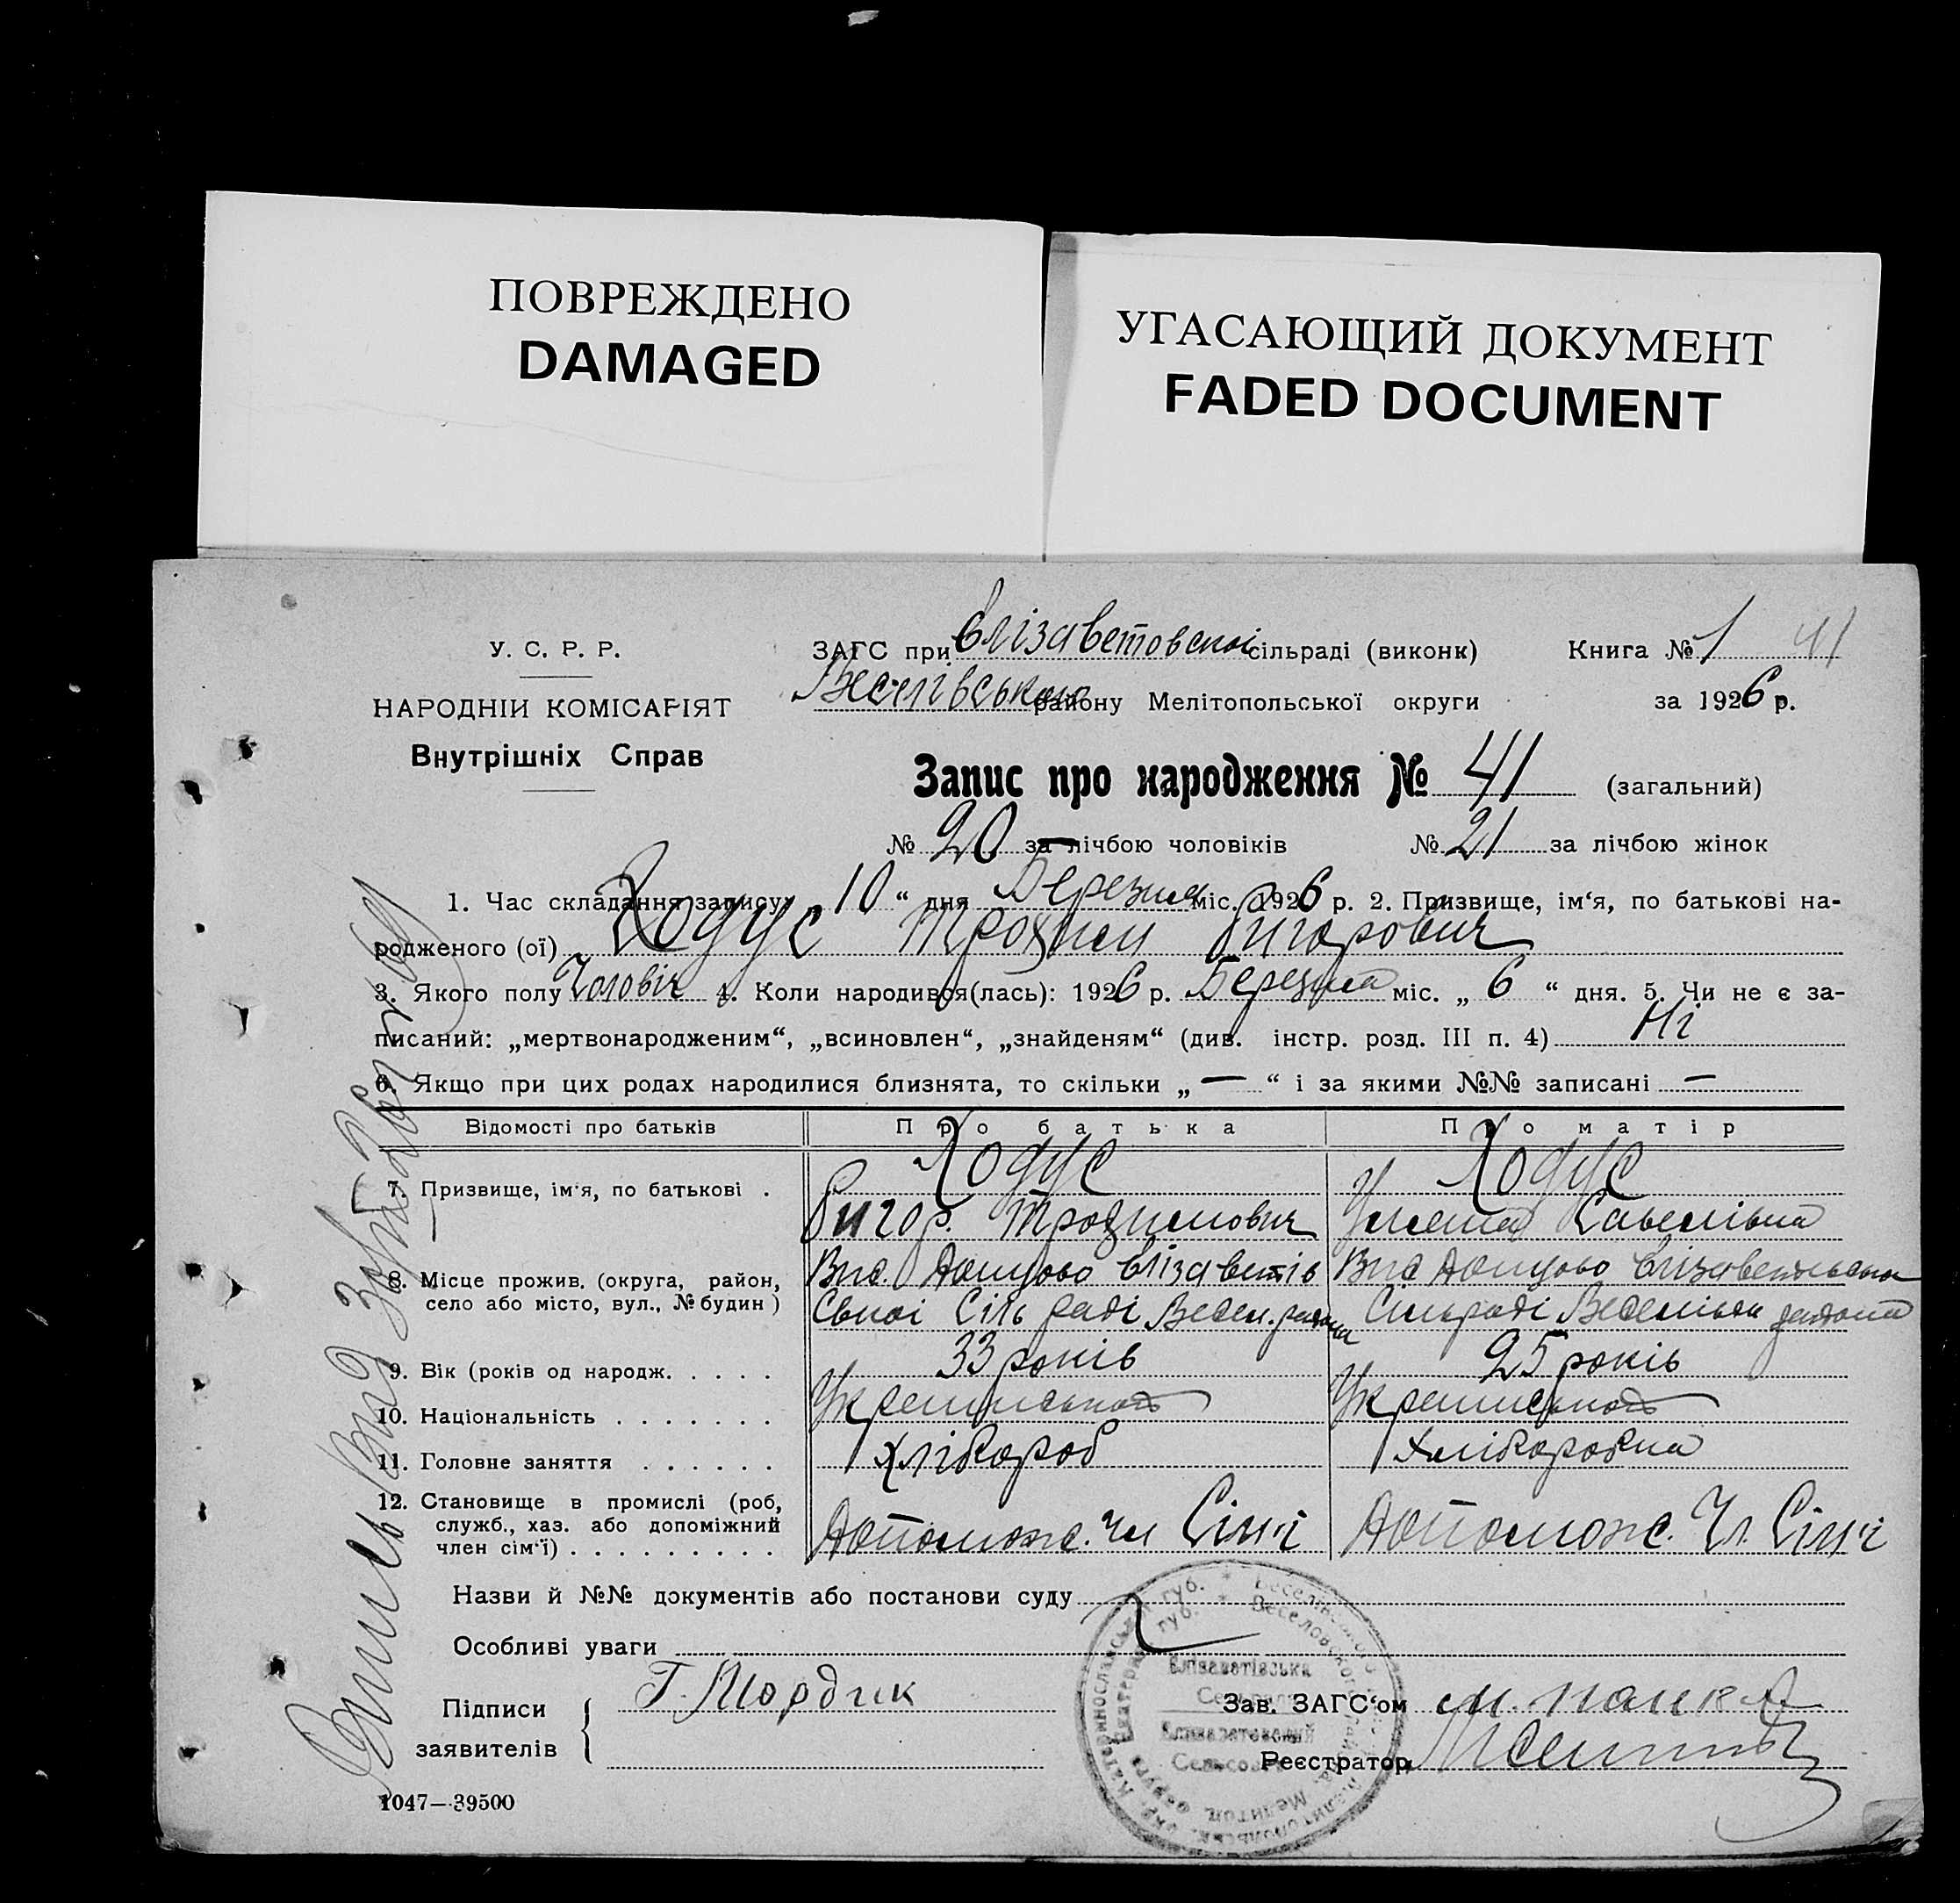 ПОВРЕЖДЕНО
DAMAGED
УГАСАЮЩИЙ ДОКУМЕНТ
FADED DOCUMENT
У. С. Р. Р.
НАРОДНІИ КОМІСАРІЯТ
Внутрішніх Справ
ЗАГС при Єлізаветовской сільраді (виконк) Книга № 1 41
Веселівського району Мелітопольської округи за 1926 р.
Запис про народження № 41 (загальний)
№ 20 за лічбою чоловіків № 21 за лічбою жінок
1. Час складання запису: 10 “ дня Березня міс. 1926 р. 2. Призвище, ім‘я, по батькові на-
родженого (ої) Ходус Трохим Григорович
3. Якого полу Чоловіч 4. Коли народився(лась): 1926 р. Березня міс. „ 6 “ дня. 5. Чи не є за-
писаний: „мертвонародженим“, „всиновлен“, „знайденям“ (див. інстр. розд. III п. 4) Ні
6. Якщо при цих родах народилися близнята, то скільки „ — “ і за якими №№ записані —
Відомості про батьків Про батька Про матір
7. Призвище, ім‘я, по батькові . Ходус Ходус
Григор. Трохимович Савелівна
8. Місце прожив. (округа, район,
село або місто, вул., № будин )
Єлізаветів
Сільраді
9. Вік (років од народж. . . . . 33 років 25 років
10. Національність . . . . . . .
11. Головне заняття . . . . . . Хлібороб Хліборобка
12. Становище в промислі (роб,
служб., хаз. або допоміжний
член сім‘ї) . . . . . . . . . Допомож. чл Сімї Допомож. Чл. Сімї
Назви й №№ документів або постанови суду
Особливі уваги
Підписи
заявителів
Г. Мордик
Зав. ЗАГС‘ом
Реєстратор
Єлізаветівська
Елизаветовский
1047—39500